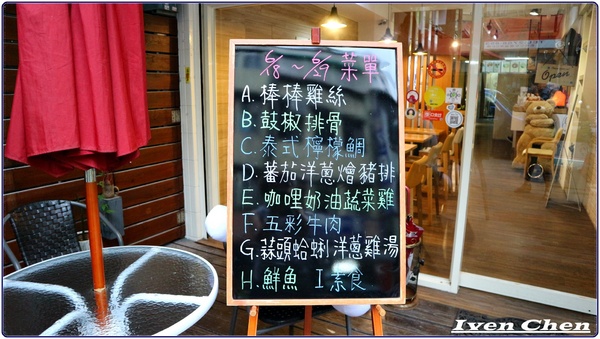 8/8～8/9 菜單
A. 棒棒雞絲
B. 鼓椒排骨
C. 泰式檸檬鯛
D. 蕃茄洋蔥燴豬排
E. 咖哩奶油蔬菜雞
F. 五彩牛肉
G. 蒜頭蛤蜊洋蔥雞湯
H. 鮮魚 I 素食
Open
Iven Chen